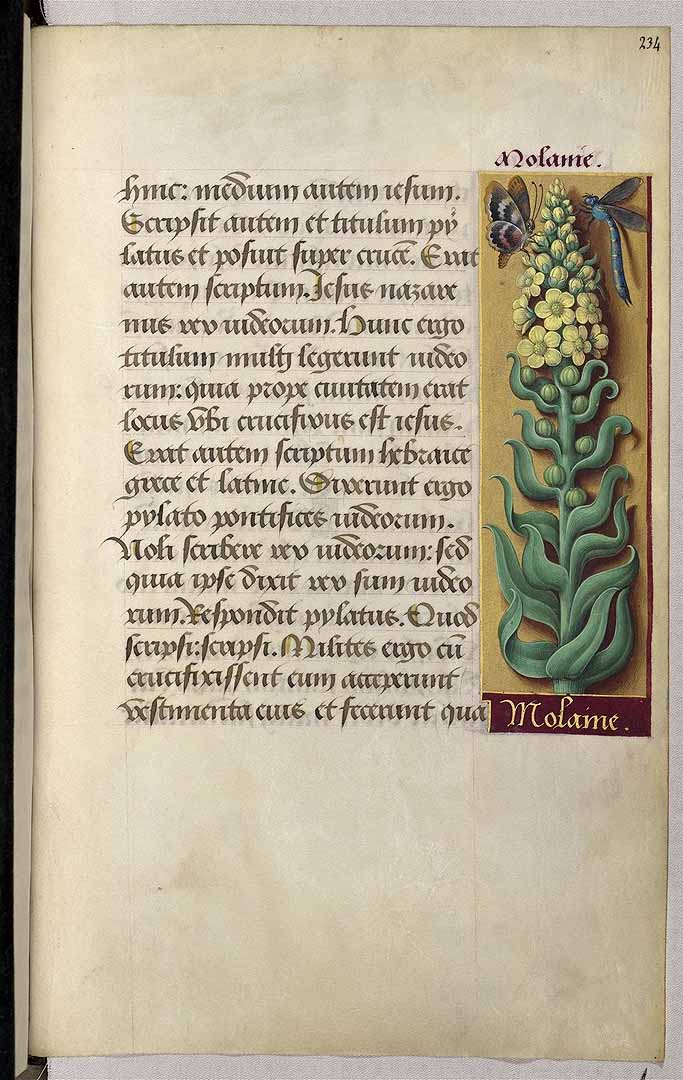 234
Molaine.
hinc: medium autem iesum.
Scripsit autem et titulum py
latus et posuit super crucē. Erat
autem scriptum. Jesus nazare
nus rex iudeorum. Hunc ergo
titulum multi legerunt iudeo
rum: quia prope ciuitatem erat
locus vbi crucifixus est iesus.
Erat autem scriptum hebraice
grece et latine. Dixerunt ergo
pylato pontifices iudeorum.
Noli scribere rex iudeorum: sed
quia ipse dixit rex sum iudeo
rum. Respondit pylatus. Quod
scripsi: scripsi. Milites ergo cū
crucifixissent eum acceperunt
vestimenta eius et fecerunt qua
Molaine.